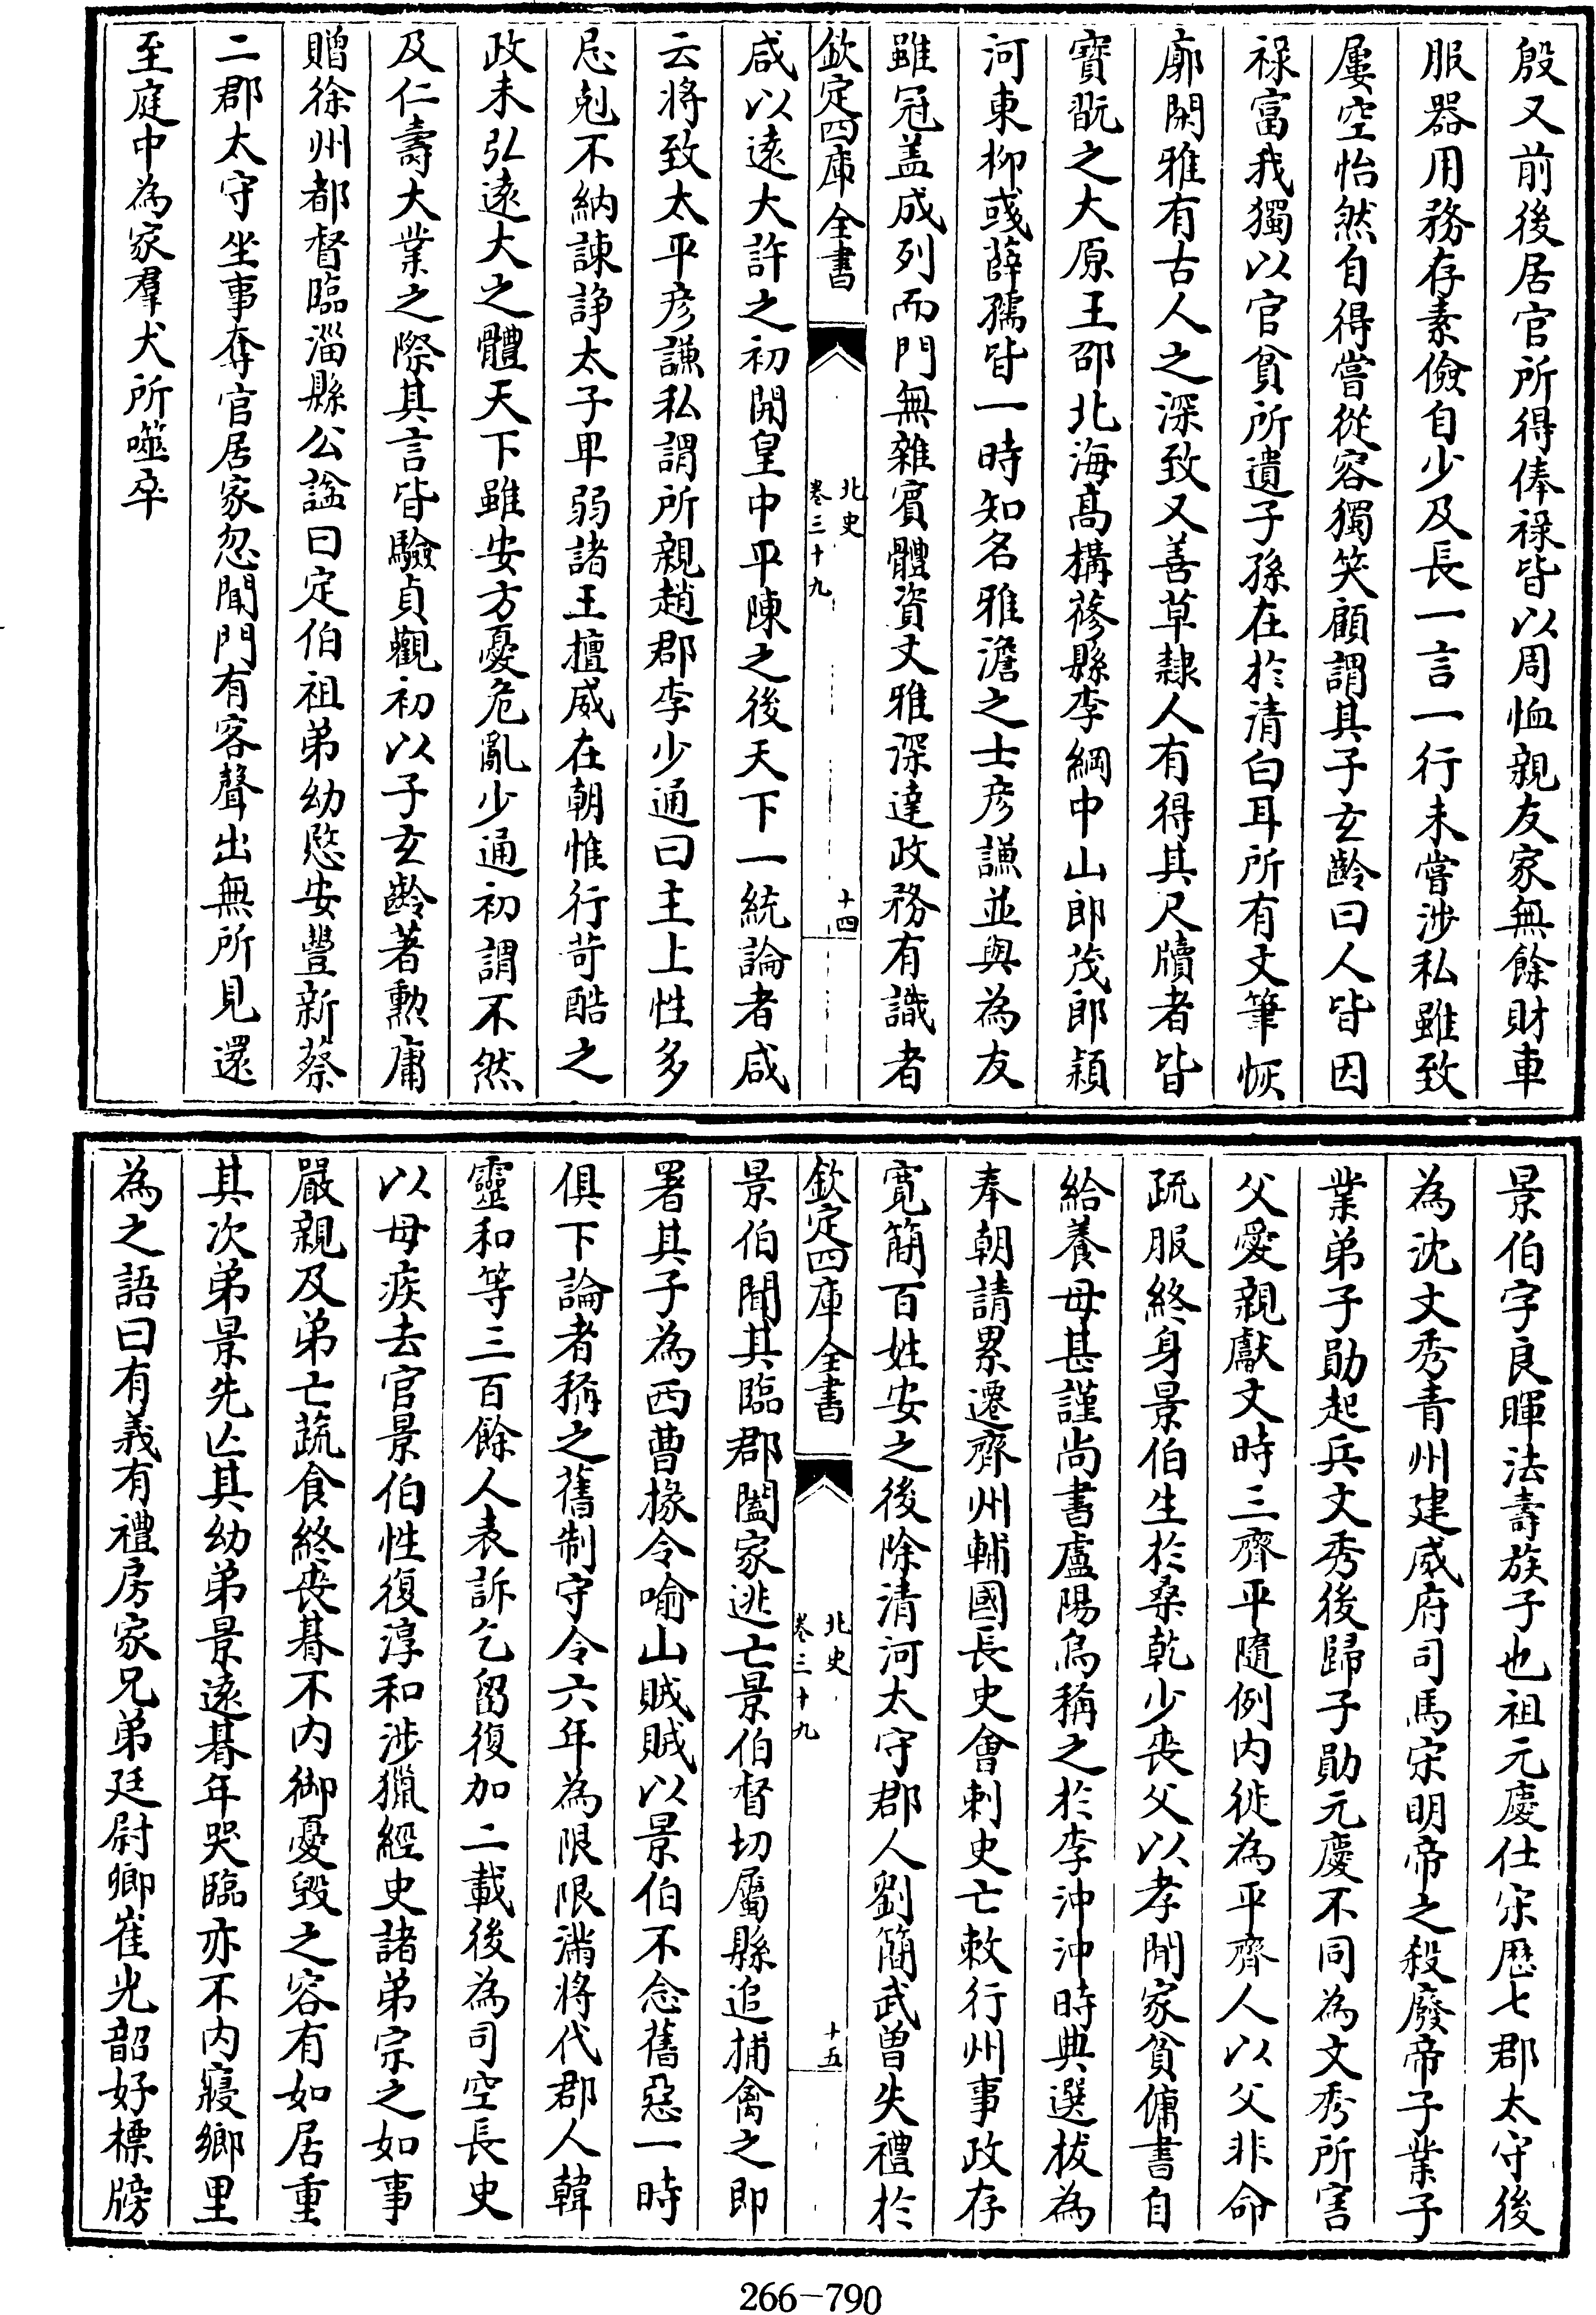 殷又前後居官所得俸禄皆以周恤親友家無餘財車
服器用務存素儉自少及長一言一行未嘗涉私雖致
屢空怡然自得嘗從容獨笑顧謂其子玄齡曰人皆因
禄富我獨以官貧所遺子孫在於清白耳所有文筆恢
廓閑雅有古人之深致又善草隸人有得其尺牘者皆
寶翫之大原王邵北海髙構蓨縣李綱中山郎茂郎頴
河東柳彧薛孺皆一時知名雅澹之士彦謙並與為友
雖冠盖成列而門無雜賔體資文雅深達政務有識者
欽定四庫全書
北史
卷三十九
十四
咸以逺大許之初開皇中平陳之後天下一統論者咸
云將致太平彦謙私謂所親趙郡李少通曰主上性多
忌剋不納諫諍太子卑弱諸王擅威在朝惟行苛酷之
政未弘逺大之體天下雖安方憂危亂少通初謂不然
及仁壽大業之際其言皆驗貞觀初以子玄齡著勲庸
贈徐州都督臨淄縣公諡曰定伯祖弟幼愍安豐新蔡
二郡太守坐事奪官居家忽聞門有客聲出無所見還
至庭中為家羣犬所噬卒
景伯字良暉法壽族子也祖元慶仕宋歴七郡太守後
為沈文秀青州建威府司馬宋明帝之殺廢帝子業子
業弟子勛起兵文秀後歸子勛元慶不同為文秀所害
父愛親獻文時三齊平隨例内徙為平齊人以父非命
疏服終身景伯生於桑乾少丧父以孝聞家貧傭書自
給養母甚謹尚書盧陽烏稱之於李沖沖時典選拔為
奉朝請累遷齊州輔國長史會刺史亡敕行州事政存
寛簡百姓安之後除清河太守郡人劉簡武曽失禮於
欽定四庫全書
北史
卷三十九
十五
景伯聞其臨郡闔家逃亡景伯督切屬縣追捕禽之即
署其子為西曹掾令喻山賊賊以景伯不念舊惡一時
俱下論者稱之舊制守令六年為限限滿將代郡人韓
靈和等三百餘人表訴乞留復加二載後為司空長史
以母疾去官景伯性復淳和涉獵經史諸弟宗之如事
嚴親及弟亡蔬食終丧朞不内御憂毁之容有如居重
其次弟景先亡其幼弟景逺朞年哭臨亦不内寢鄉里
為之語曰有義有禮房家兄弟廷尉卿崔光韶好標牓
266-790